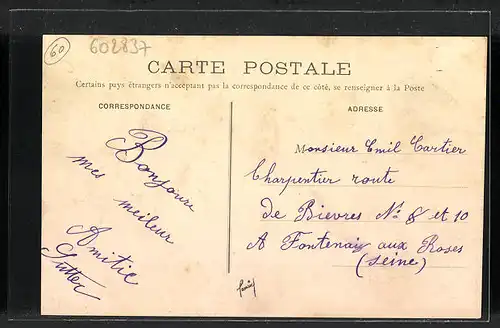 60
602837
CARTE POSTALE
Certains pays étrangers n'acceptant pas la correspondance de ce côté, se renseigner à la Poste
CORRESPONDANCE
Bonjoure
mes meileur
Amitie
Sutter
ADRESSE
Monsieur Emil Cartier
Charpentier route
de Bievres No 8 et 10
A Fontenaiy aux Roses
(Seine)